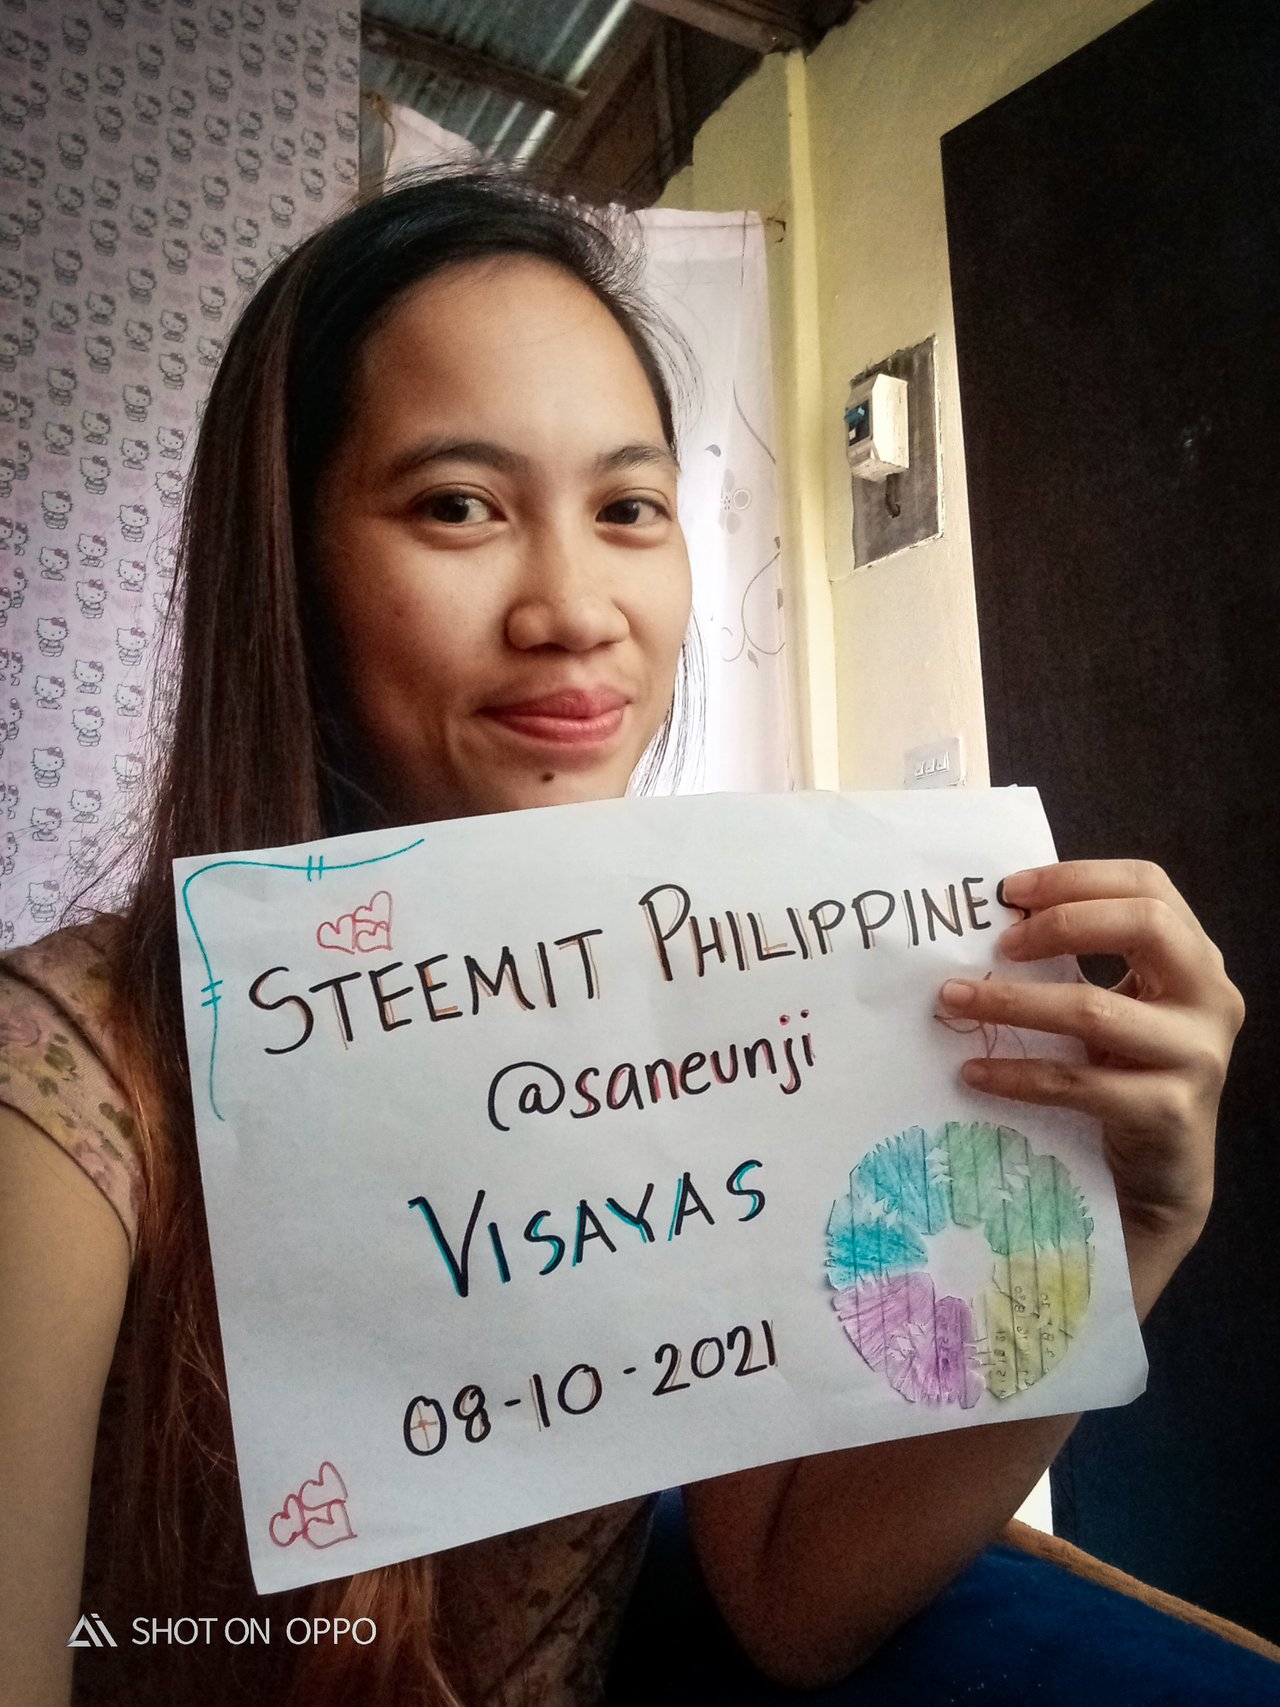 STEEMIT PHILIPPINES
@saneunji
VISAYAS
08-10-2021
SHOT ON OPPO